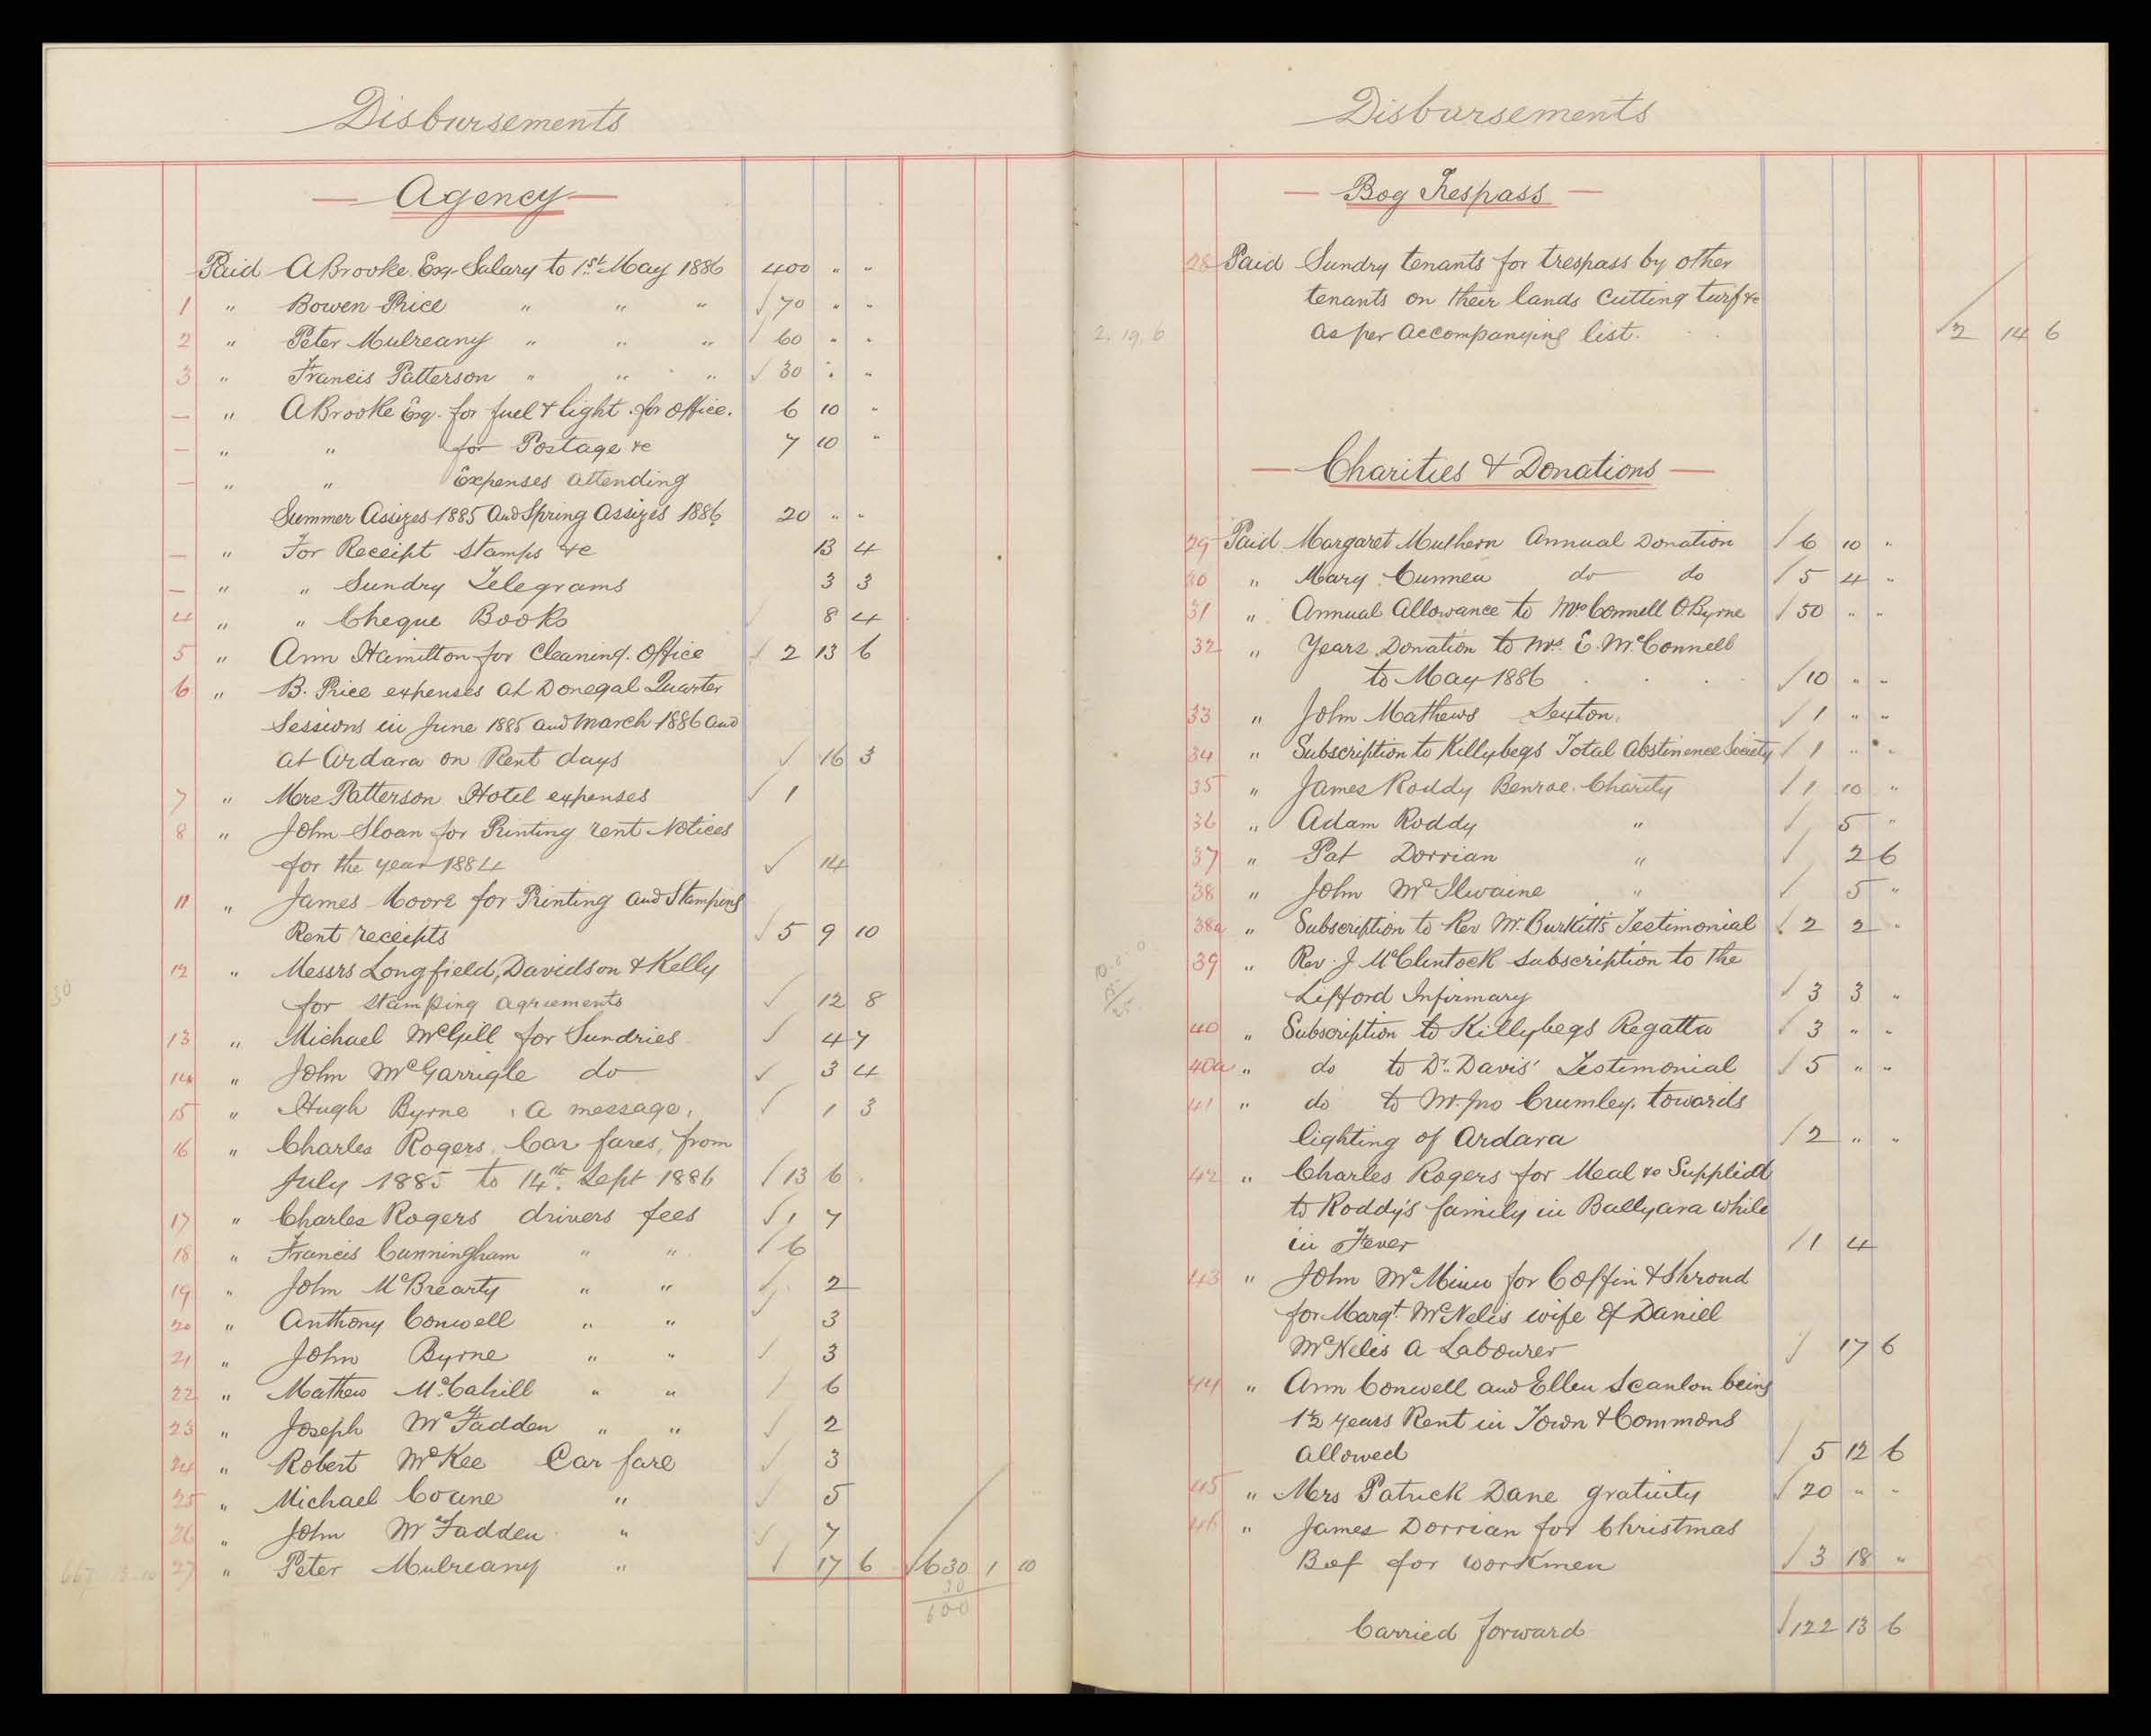 Disbursements
Agency
Paid A Brooke Esq. Salary to 1st May 1886 400 " "
1 " Bowen Price " " " 70 " "
2 " Peter Mulreany " " " 60 " "
3 " Francis Patterson " " " 30 " "
— " A Brooke Esq. for fuel & light for office. 6 10 "
— " " for Postage &c 7 10 "
— " " Expenses attending
Summer Assizes 1885 and Spring Assizes 1886 20 " "
— " For Receipt Stamps &c 13 4
— " " Sundry Telegrams 3 3
4 " " Cheque Books 8 4
5 " Ann Hamilton for Cleaning Office 2 13 6
6 " B. Price expenses at Donegal Quarter
Sessions in June 1885 and March 1886 and
at Ardara on Rent days 16 3
7 " Mrs Patterson Hotel expenses 1
8 " John Sloan for Printing rent Notices
for the year 1884 14
11 " James Moore for Printing and Stamping
Rent receipts 5 9 10
12 " Messrs Longfield, Davidson & Kelly
for stamping agreements 12 8
13 " Michael McGill for Sundries 4 7
14 " John McGarrigle do 3 4
15 " Hugh Byrne , a message, 1 3
16 " Charles Rogers Car fares, from
July 1885 to 14th Sept 1886 13 6
17 " Charles Rogers drivers fees 1 7
18 " Francis Cunningham " " 6
19 " John McBrearty " " 2
20 " Anthony Conwell " " 3
21 " John Byrne " " 3
22 " Mathew McCahill " " 6
23 " Joseph McFadden " " 2
24 " Robert McKee Car fare 3
25 " Michael Coane " 5
26 " John McFadden " 7
27 " Peter Mulreany " 17 6 630 1 10
30
600
30
Disbursements
Bog Trespass
28 Paid Sundry tenants for trespass by other
tenants on their lands Cutting turf &c
as per accompanying list. 2 14 6
2. 19. 6
Charities & Donations
29 Paid Margaret Mulhern Annual Donation 6 10 "
30 " Mary Cunnea do do 5 4 "
31 " Annual Allowance to Mrs Connell O'Byrne 50 " "
32 " Years Donation to Mrs E. McConnell
to May 1886 10 " "
33 " John Mathews Sexton. 1 " "
34 " Subscription to Killybegs Total Abstinence Society 1 " "
35 " James Roddy Benroe. Charity 1 10 "
36 " Adam Roddy " 5 "
37 " Pat Dorrian " 2 6
38 " John McIlwaine " 5 "
38a " Subscription to Rev Mr. Burkitt's Testimonial 2 2 "
39 " Rev. J McClintock subscription to the
Lifford Infirmary 3 3 "
40 " Subscription to Killybegs Regatta 3 " "
40a " do to Dr. Davis' Testimonial 5 " "
41 " do to Mr. Jno Crumley. towards
lighting of Ardara 2 " "
42 " Charles Rogers for Meal &c Supplied
to Roddy's family in Ballyara while
in Fever 1 4
43 " John McMinn for Coffin & Shroud
for Margt. McNelis wife of Daniel
McNelis a Labourer 17 6
44 " Ann Conwell and Ellen Scanlon being
1½ years Rent in Town & Commons
allowed 5 12 6
45 " Mrs Patrick Dane gratuity 20 " "
46 " James Dorrian for Christmas
Beef for workmen 3 18 "
Carried forward 122 13 6